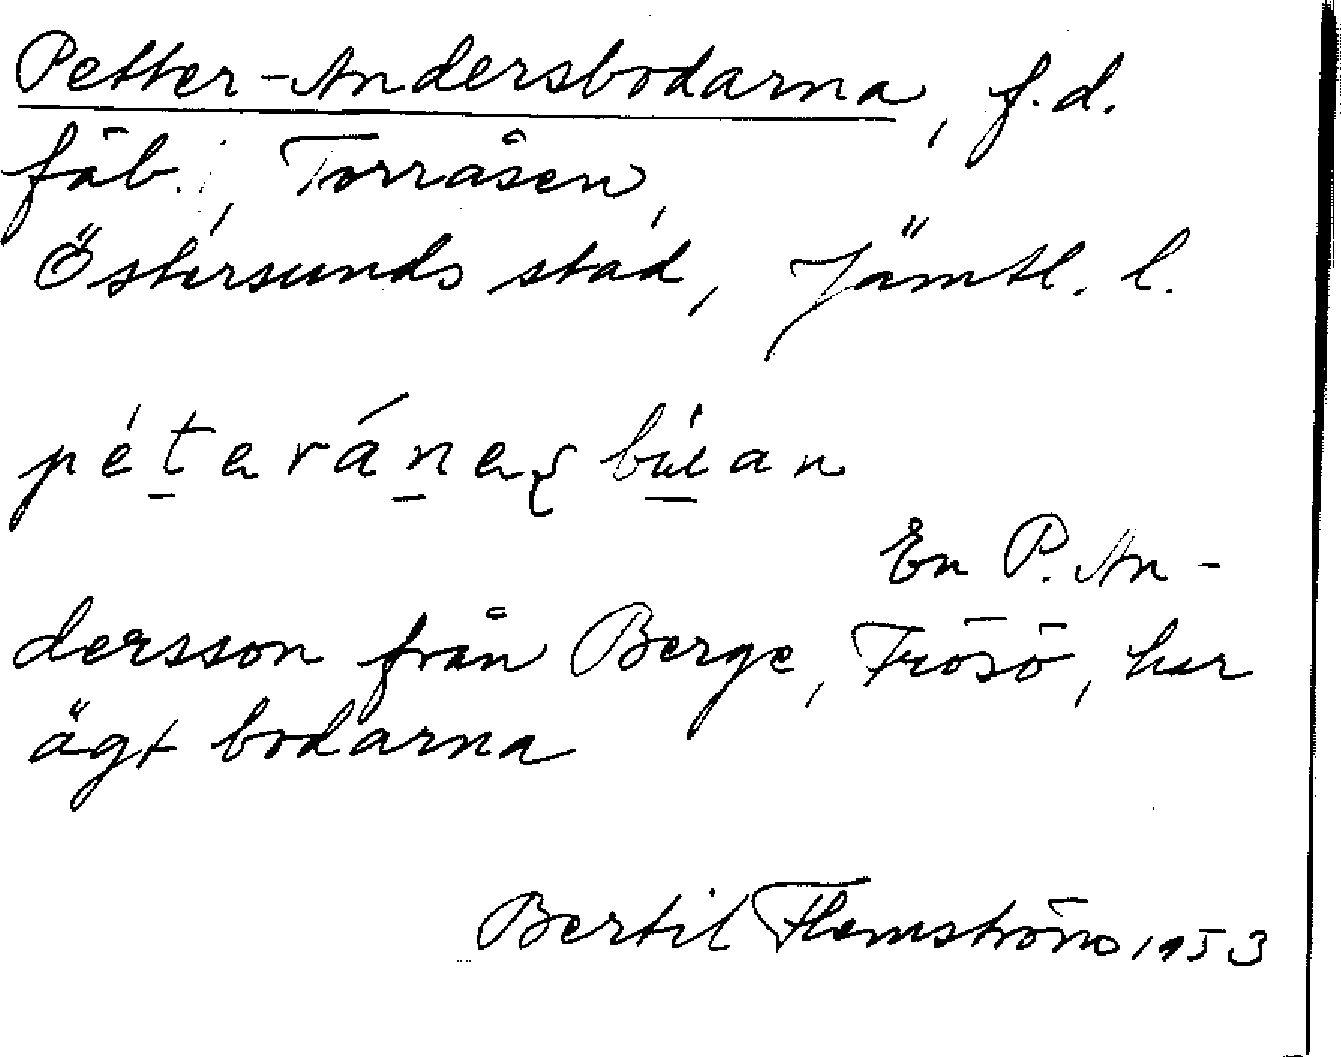 Petter-Andersbodarna, f.d.
fäb., Torråsen,
Östersunds stad, Jämtl. l.
péteráneʂ búan
En P. An-
dersson från Berge, Frösö, har
ägt bodarna
Bertil Flemström 1953